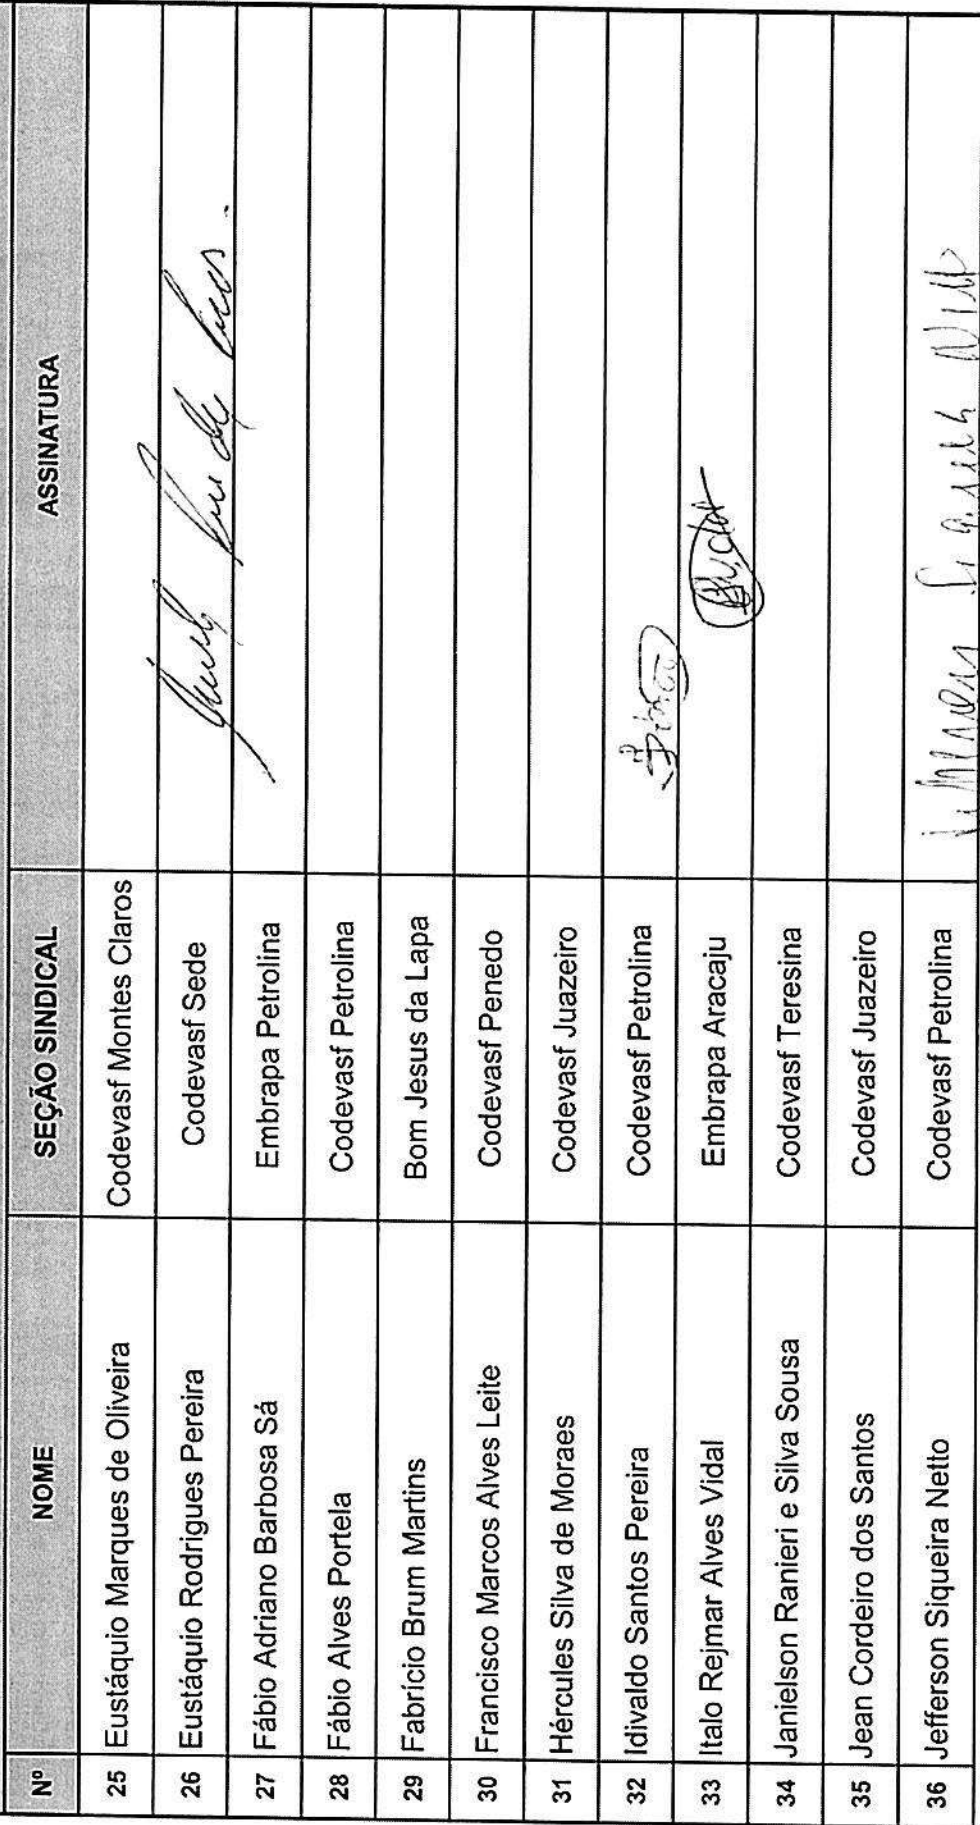 Nº NOME SEÇÃO SINDICAL ASSINATURA
25 Eustáquio Marques de Oliveira Codevasf Montes Claros
26 Eustáquio Rodrigues Pereira Codevasf Sede
27 Fábio Adriano Barbosa Sá Embrapa Petrolina
28 Fábio Alves Portela Codevasf Petrolina
29 Fabrício Brum Martins Bom Jesus da Lapa
30 Francisco Marcos Alves Leite Codevasf Penedo
31 Hércules Silva de Moraes Codevasf Juazeiro
32 Idivaldo Santos Pereira Codevasf Petrolina
33 Italo Rejmar Alves Vidal Embrapa Aracaju
34 Janielson Ranieri e Silva Sousa Codevasf Teresina
35 Jean Cordeiro dos Santos Codevasf Juazeiro
36 Jefferson Siqueira Netto Codevasf Petrolina